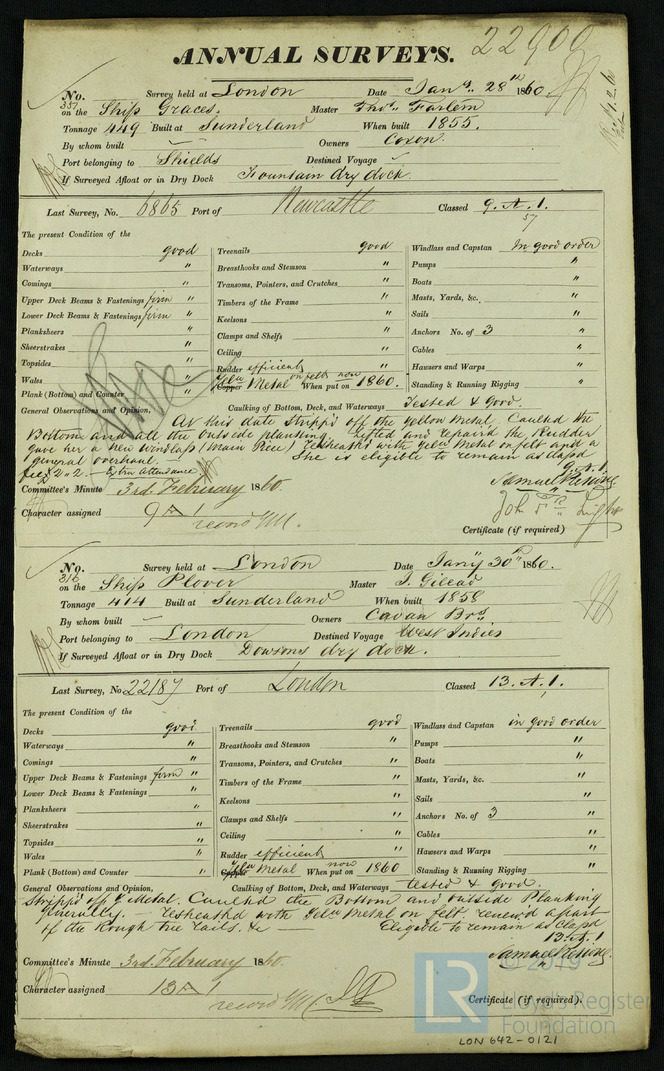 22900
ANNUAL SURVEYS.
No. 357 Survey held at London Date Jany. 28th 1860.
on the Ship Graces. Master Thos. Farlem
Tonnage 449 Built at Sunderland When built 1855.
By whom built — Owners Coxon.
Port belonging to Shields Destined Voyage —
If Surveyed Afloat or in Dry Dock Fountain dry dock.
Last Survey, No. 6865 Port of Newcastle Classed 9. A. 1.
57
The present Condition of the
Decks good Treenails good Windlass and Capstan In good order
Waterways " Breasthooks and Stemson " Pumps "
Comings " Transoms, Pointers, and Crutches " Boats "
Upper Deck Beams & Fastenings firm " Timbers of the Frame " Masts, Yards, &c. "
Lower Deck Beams & Fastenings firm " Keelsons " Sails "
Planksheers " Clamps and Shelfs " Anchors No. of 3 "
Sheerstrakes " Ceiling " Cables "
Topsides " Rudder efficient " Hawsers and Warps "
Wales " Yellw Metal on felt When put on now 1860. Standing & Running Rigging "
Plank (Bottom) and Counter "
General Observations and Opinion, Caulking of Bottom, Deck, and Waterways Tested & good.
At this date stripp'd off the yellow Metal, Caulk'd the
Bottom and all the outside planking, lifted and repair'd the Rudder
gave her a new Windlass (Main Piece) resheath'd with Yellw Metal on felt and a
general overhaul. She is eligible to remain as Class'd
9. A. 1.
fee £2"2. — Extra Attendance
Committee's Minute 3rd. February 1860.
Character assigned 9 A 1
record YM.
Certificate (if required)
No. 316 Survey held at London Date Jany 30th 1860.
on the Ship Plover Master J. Gilead
Tonnage 414 Built at Sunderland When built 1858
By whom built — Owners Cavan Bros.
Port belonging to London Destined Voyage West Indies
If Surveyed Afloat or in Dry Dock Dowsons dry dock.
Last Survey, No 22187 Port of London Classed 13. A. 1.
The present Condition of the
Decks good Treenails good Windlass and Capstan in good order
Waterways " Breasthooks and Stemson " Pumps "
Comings " Transoms, Pointers, and Crutches " Boats "
Upper Deck Beams & Fastenings firm " Timbers of the Frame " Masts, Yards, &c. "
Lower Deck Beams & Fastenings " Keelsons " Sails "
Planksheers " Clamps and Shelfs " Anchors No. of 3 "
Sheerstrakes " Ceiling " Cables "
Topsides " Rudder efficient " Hawsers and Warps "
Wales " Yellw Metal When put on now 1860 Standing & Running Rigging "
Plank (Bottom) and Counter "
General Observations and Opinion, Caulking of Bottom, Deck, and Waterways tested & good.
Stripp'd off Y Metal. Caulk'd the Bottom and outside Planking
generally. — resheath'd with Yellw Metal on felt. renew'd a part
of the Rough tree rails. &c — Eligible to remain as Class'd
13. A. 1
Committee's Minute 3rd. February 1860.
Character assigned 13 A 1
record YM
Certificate (if required).
© 2019
LR
Lloyd's Register
Foundation
LON 642-0121